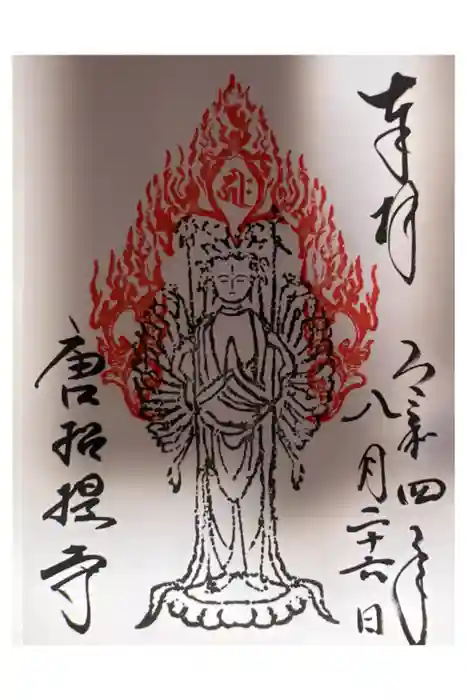 奉拝
令和四年
八月二十六日
唐招提寺